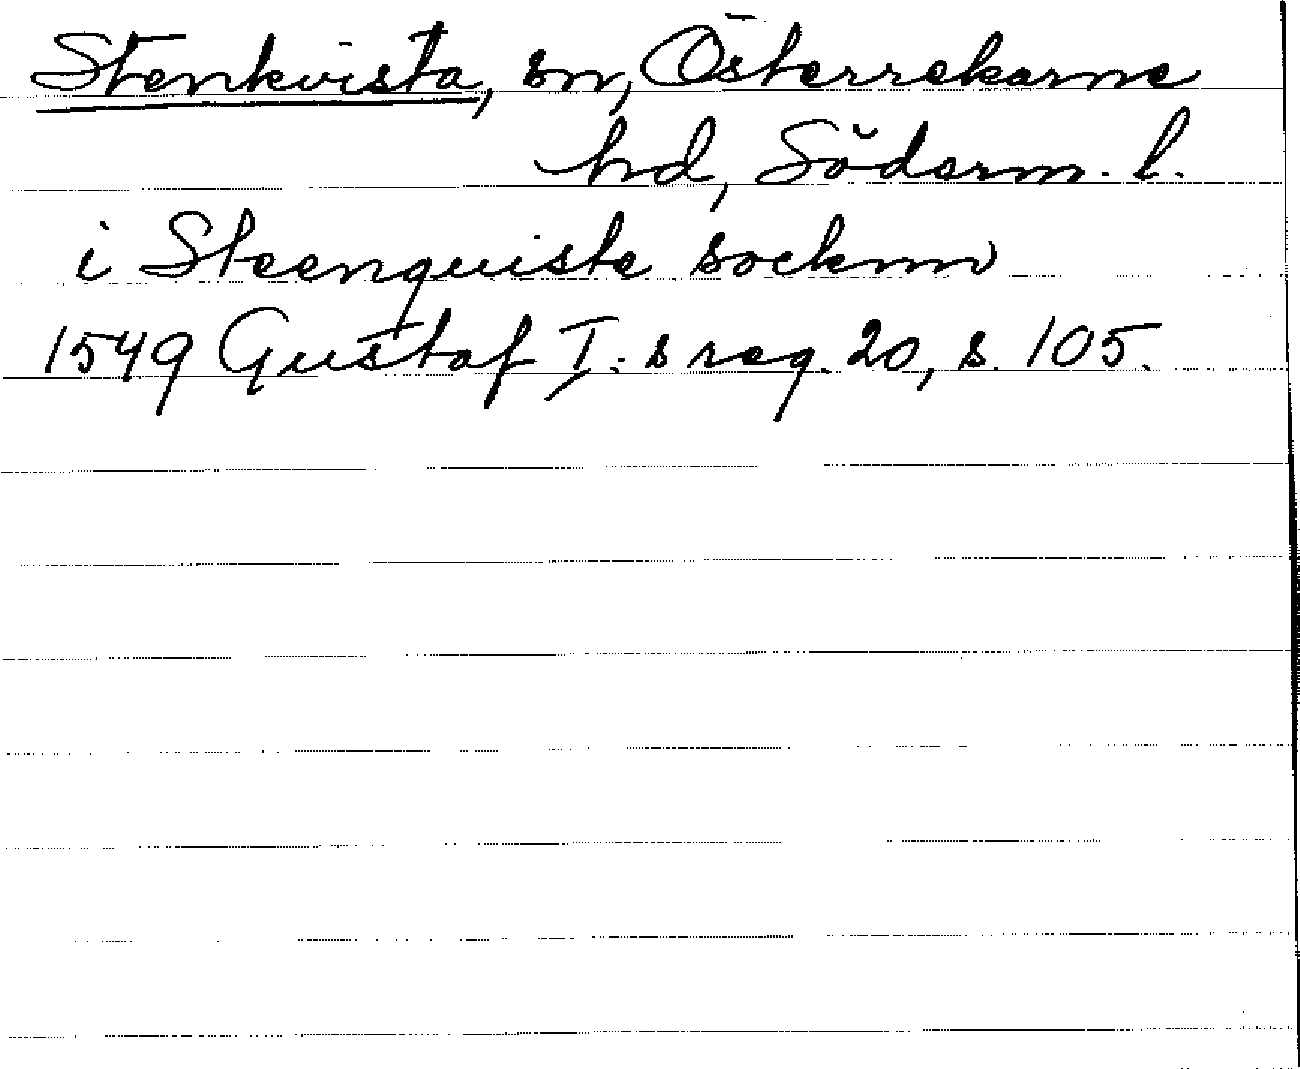 Stenkvista, sn, Österrekarne
hd, Söderm. l.
i Steenquiste socknn
1549 Gustaf I:s reg. 20, s. 105.